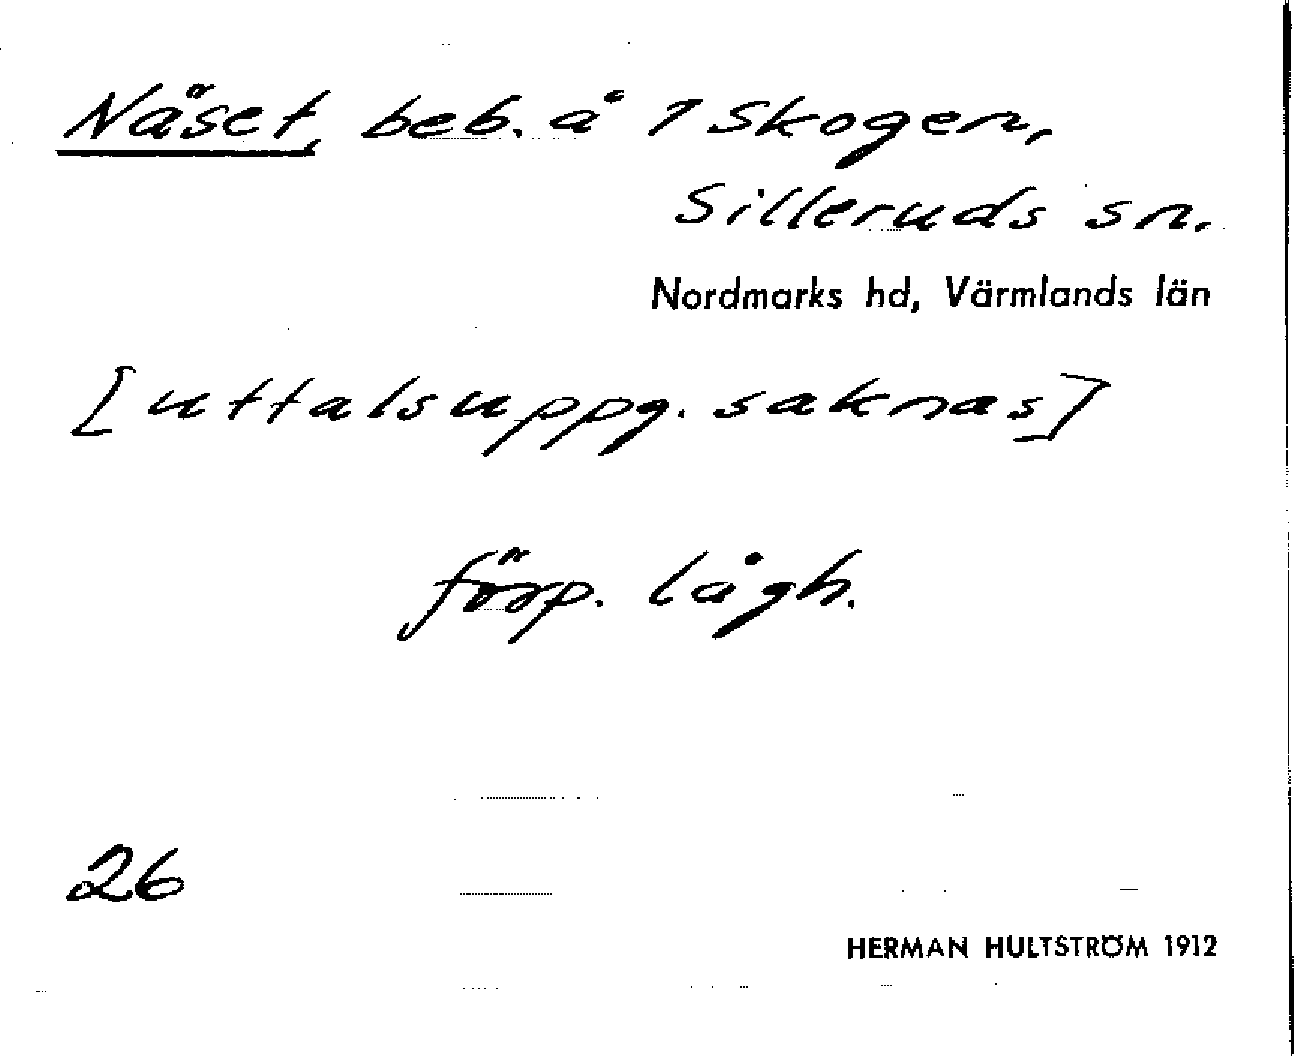 Näset, beb. å 1 Skogen,
Silleruds sn.
Nordmarks hd, Värmlands län
[uttalsuppg. saknas]
förp. lågh.
26
HERMAN HULTSTRÖM 1912